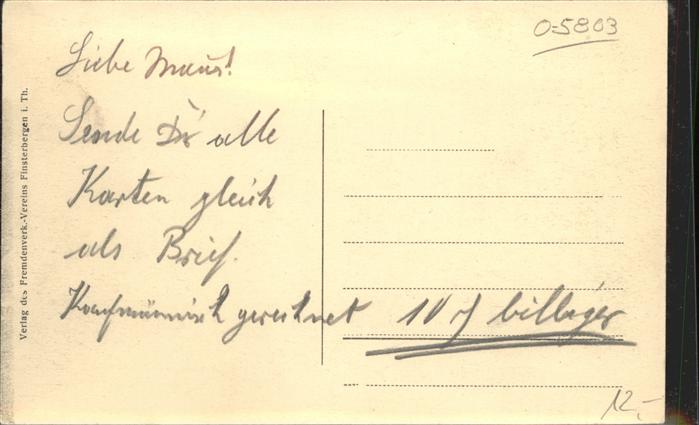 O-5803
Liebe Maus!
Sende Dir alle
Karten gleich
als Brief.
Kaufmännisch gerechnet 10 ₰ billiger
12,-
Verlag des Fremdenverk.-Vereins Finsterbergen i. Th.